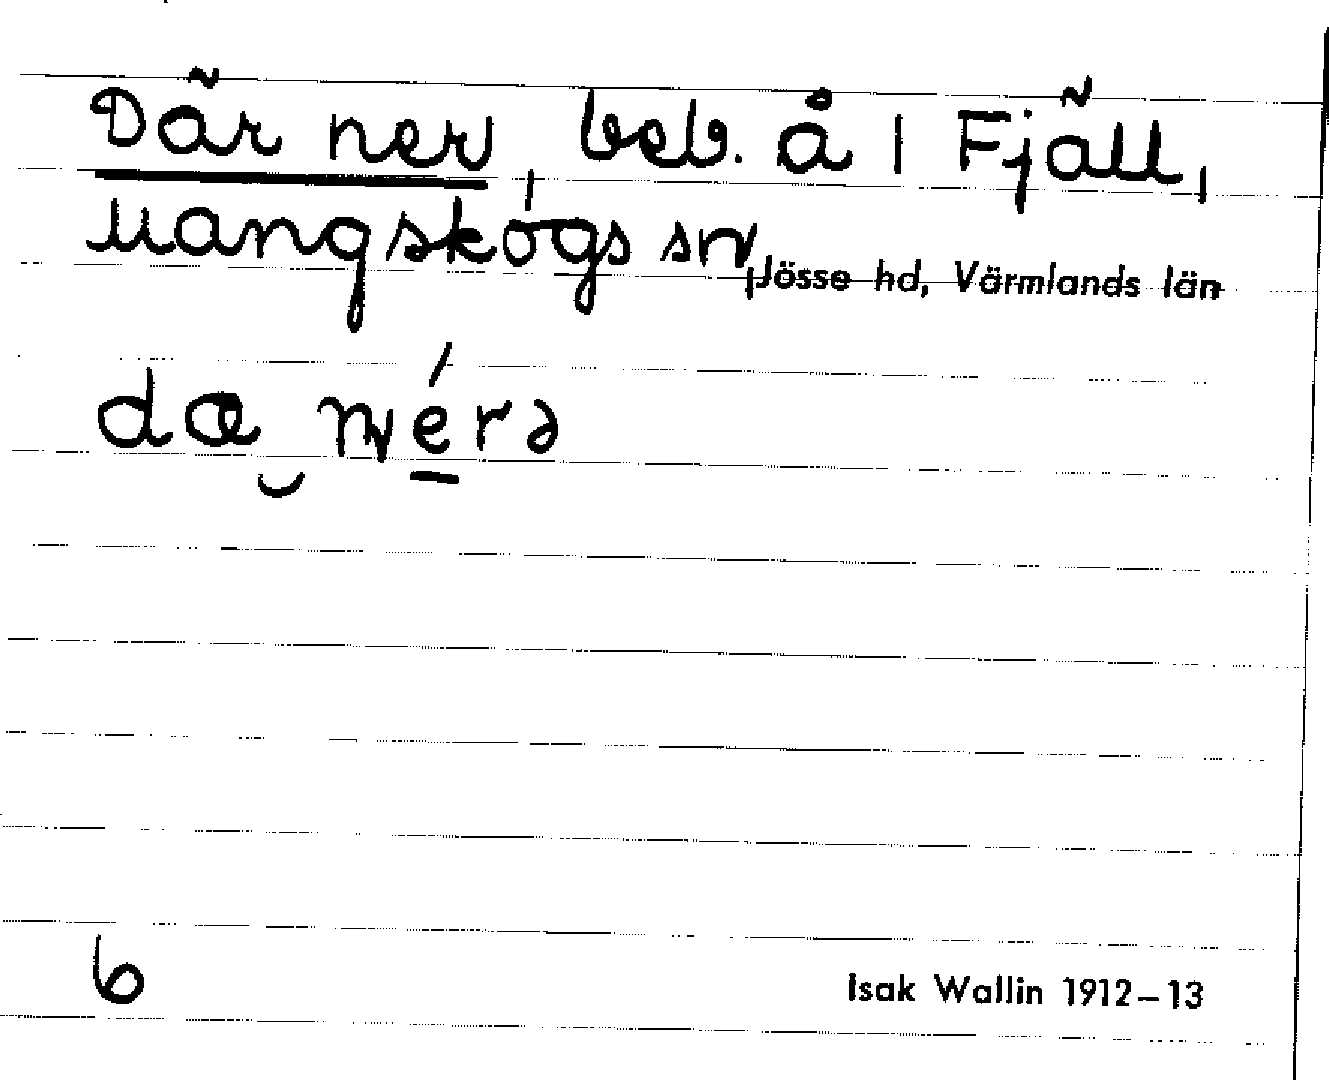 Där ner, beb. å 1 Fjäll,
Mangskogs sn, Jösse hd, Värmlands län
dæ nérə
6
Isak Wallin 1912–13